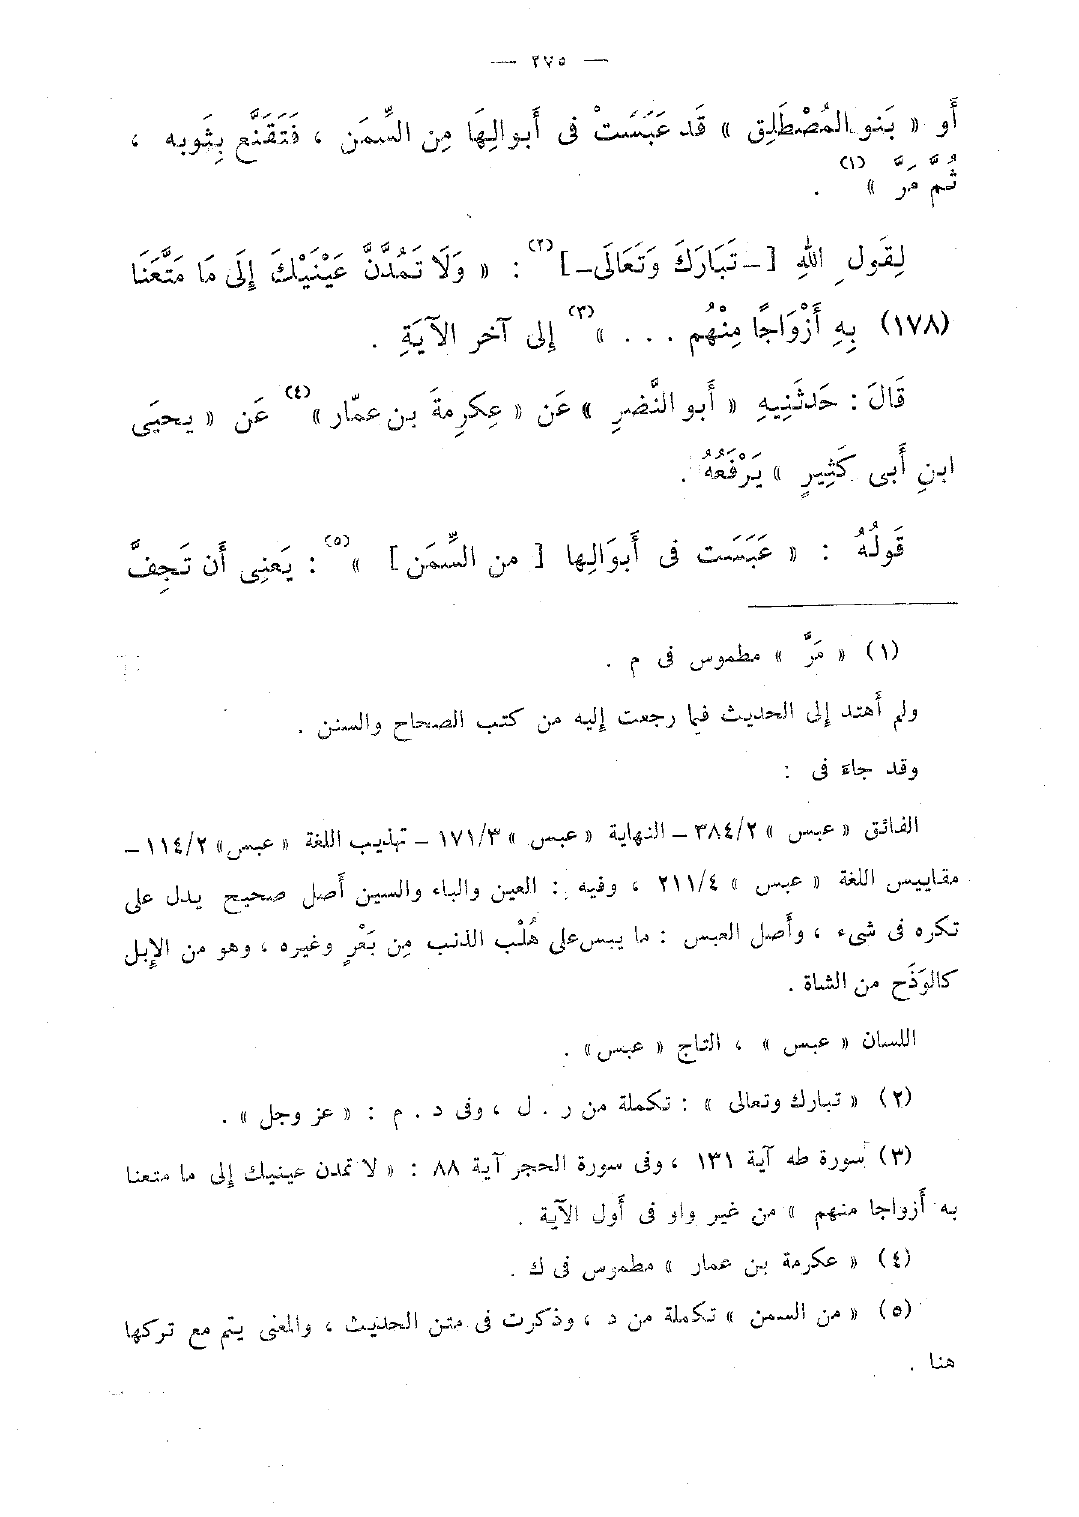 — ٢٧٥ —
أَو « بَنو المُصْطَلِق » قَد عَبَسَتْ فى أَبوالِهَا مِن السِّمَن ، فَتَقَنَّع بِثَوبه ،
ثُمَّ مَرَّ »(١) .
لِقَولِ اللهِ [ – تَبَارَكَ وَتَعَالَى – ](٢) : « وَلَا تَمُدَّنَّ عَيْنَيْكَ إِلَى مَا مَتَّعَنَا
(١٧٨) بِهِ أَزْوَاجًا مِنْهُم . . . »(٣) إِلى آخر الآيَةِ .
قَالَ : حَدثَنِيهِ « أَبو النَّضرِ » عَن « عِكرِمةَ بن عمّار »(٤) عَن « يحيَى
ابنِ أَبى كَثِيرٍ » يَرْفَعُهُ .
قَولُهُ : « عَبَسَت فى أَبوَالِها [ من السِّمَن ] »(٥) : يَعنِى أَن تَجِفَّ
(١) « مَرَّ » مطموس فى م .
ولم أَهتد إِلى الحديث فيما رجعت إِليه من كتب الصحاح والسنن .
وقد جاءَ فى :
الفائق « عبس » ٣٨٤/٢ – النهاية « عبس » ١٧١/٣ – تهذيب اللغة « عبس» ١١٤/٢ –
مقاييس اللغة « عبس » ٢١١/٤ ، وفيه : العين والباء والسين أَصل صحيح يدل على
تكره فى شىء ، وأَصل العبس : ما يبس على هُلْب الذنب مِن بَعْرٍ وغيره ، وهو من الإِبل
كالوَذَح من الشاة .
اللسان « عبس » ، التاج « عبس» .
(٢) « تبارك وتعالى » : تكملة من ر . ل ، وفى د . م : « عز وجل » .
(٣) سورة طه آية ١٣١ ، وفى سورة الحجر آية ٨٨ : « لا تمدن عينيك إِلى ما متعنا
به أَزواجا منهم » من غير واو فى أَول الآية .
(٤) « عكرمة بن عمار » مطموس فى ك .
(٥) « من السمن » تكملة من د ، وذكرت فى متن الحديث ، والمعنى يتم مع تركها
هنا .